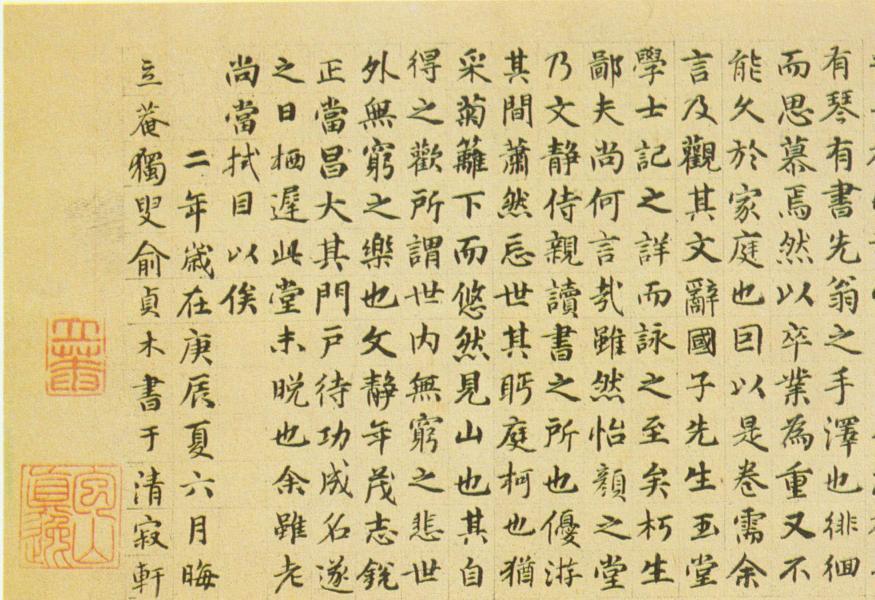 有琴有書先翁之手澤也徘徊
而思慕焉然以卒業為重又不
能久於家庭也囙以是卷需余
言及觀其文辭國子先生玉堂
學士記之詳而詠之至矣朽生
鄙夫尚何言哉雖然怡顏之堂
乃文靜侍親讀書之所也優游
其間蕭然忘世其眄庭柯也猶
采菊籬下而悠然見山也其自
得之歡所謂世內無窮之悲世
外無窮之樂也文靜年茂志銳
正當昌大其門戶待功成名遂
之日栖遲此堂未晚也余雖老
尚當拭目以俟
二年歲在庚辰夏六月晦
立菴獨叟俞貞木書于清寂軒